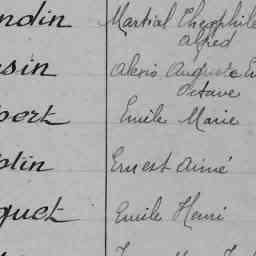 ndin Martial Théophile
Alfred
sin Alexis Auguste E
Octave
bert Emile Marie
plin Ernest Aimé
quet Emile Henri